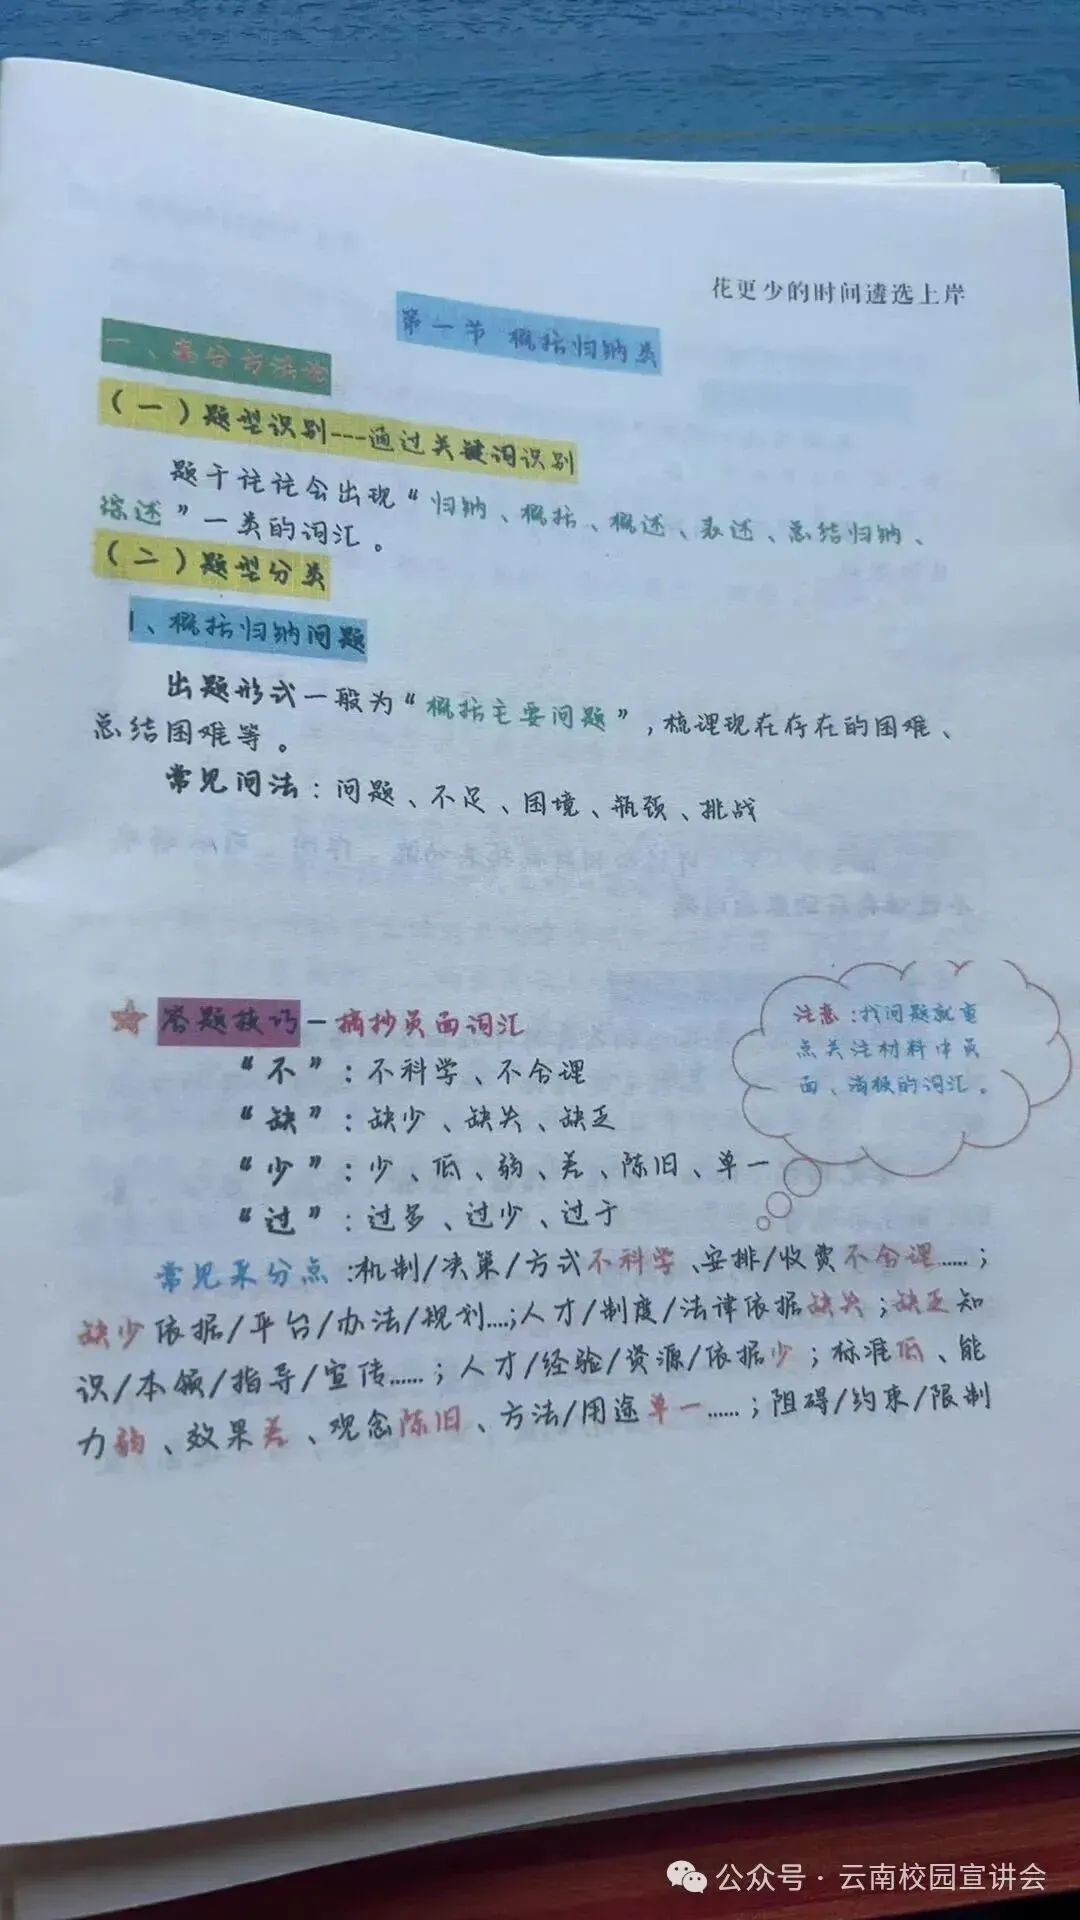 花更少的时间遴选上岸
第一节 概括归纳类
一、高分方法论
（一）题型识别---通过关键词识别
题干往往会出现“归纳、概括、概述、表述、总结归纳、
综述”一类的词汇。
（二）题型分类
1、概括归纳问题
出题形式一般为“概括主要问题”,梳理现在存在的困难、
总结困难等。
常见问法:问题、不足、困境、瓶颈、挑战
答题技巧—摘抄负面词汇
注意:找问题就重
点关注材料中负
面、消极的词汇。
“不”:不科学、不合理
“缺”:缺少、缺失、缺乏
“少”:少、低、弱、差、陈旧、单一
“过”:过多、过少、过于
常见采分点:机制/决策/方式不科学、安排/收费不合理……;
缺少依据/平台/办法/规划....;人才/制度/法律依据缺失;缺乏知
识/本领/指导/宣传……;人才/经验/资源/依据少;标准低、能
力弱、效果差、观念陈旧、方法/用途单一……;阻碍/约束/限制
公众号·云南校园宣讲会